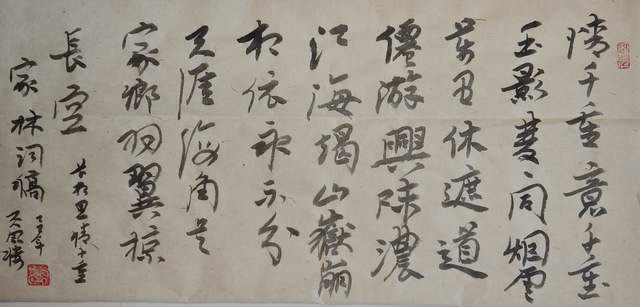 情千重意千重
玉影雙同烟雲
萬里休遮道
僊游興味濃
江海竭山嶽崩
相依永不分
天涯海角是
家鄉羽翼掠
長空
長相思情千重
家林詞稿
天風樓